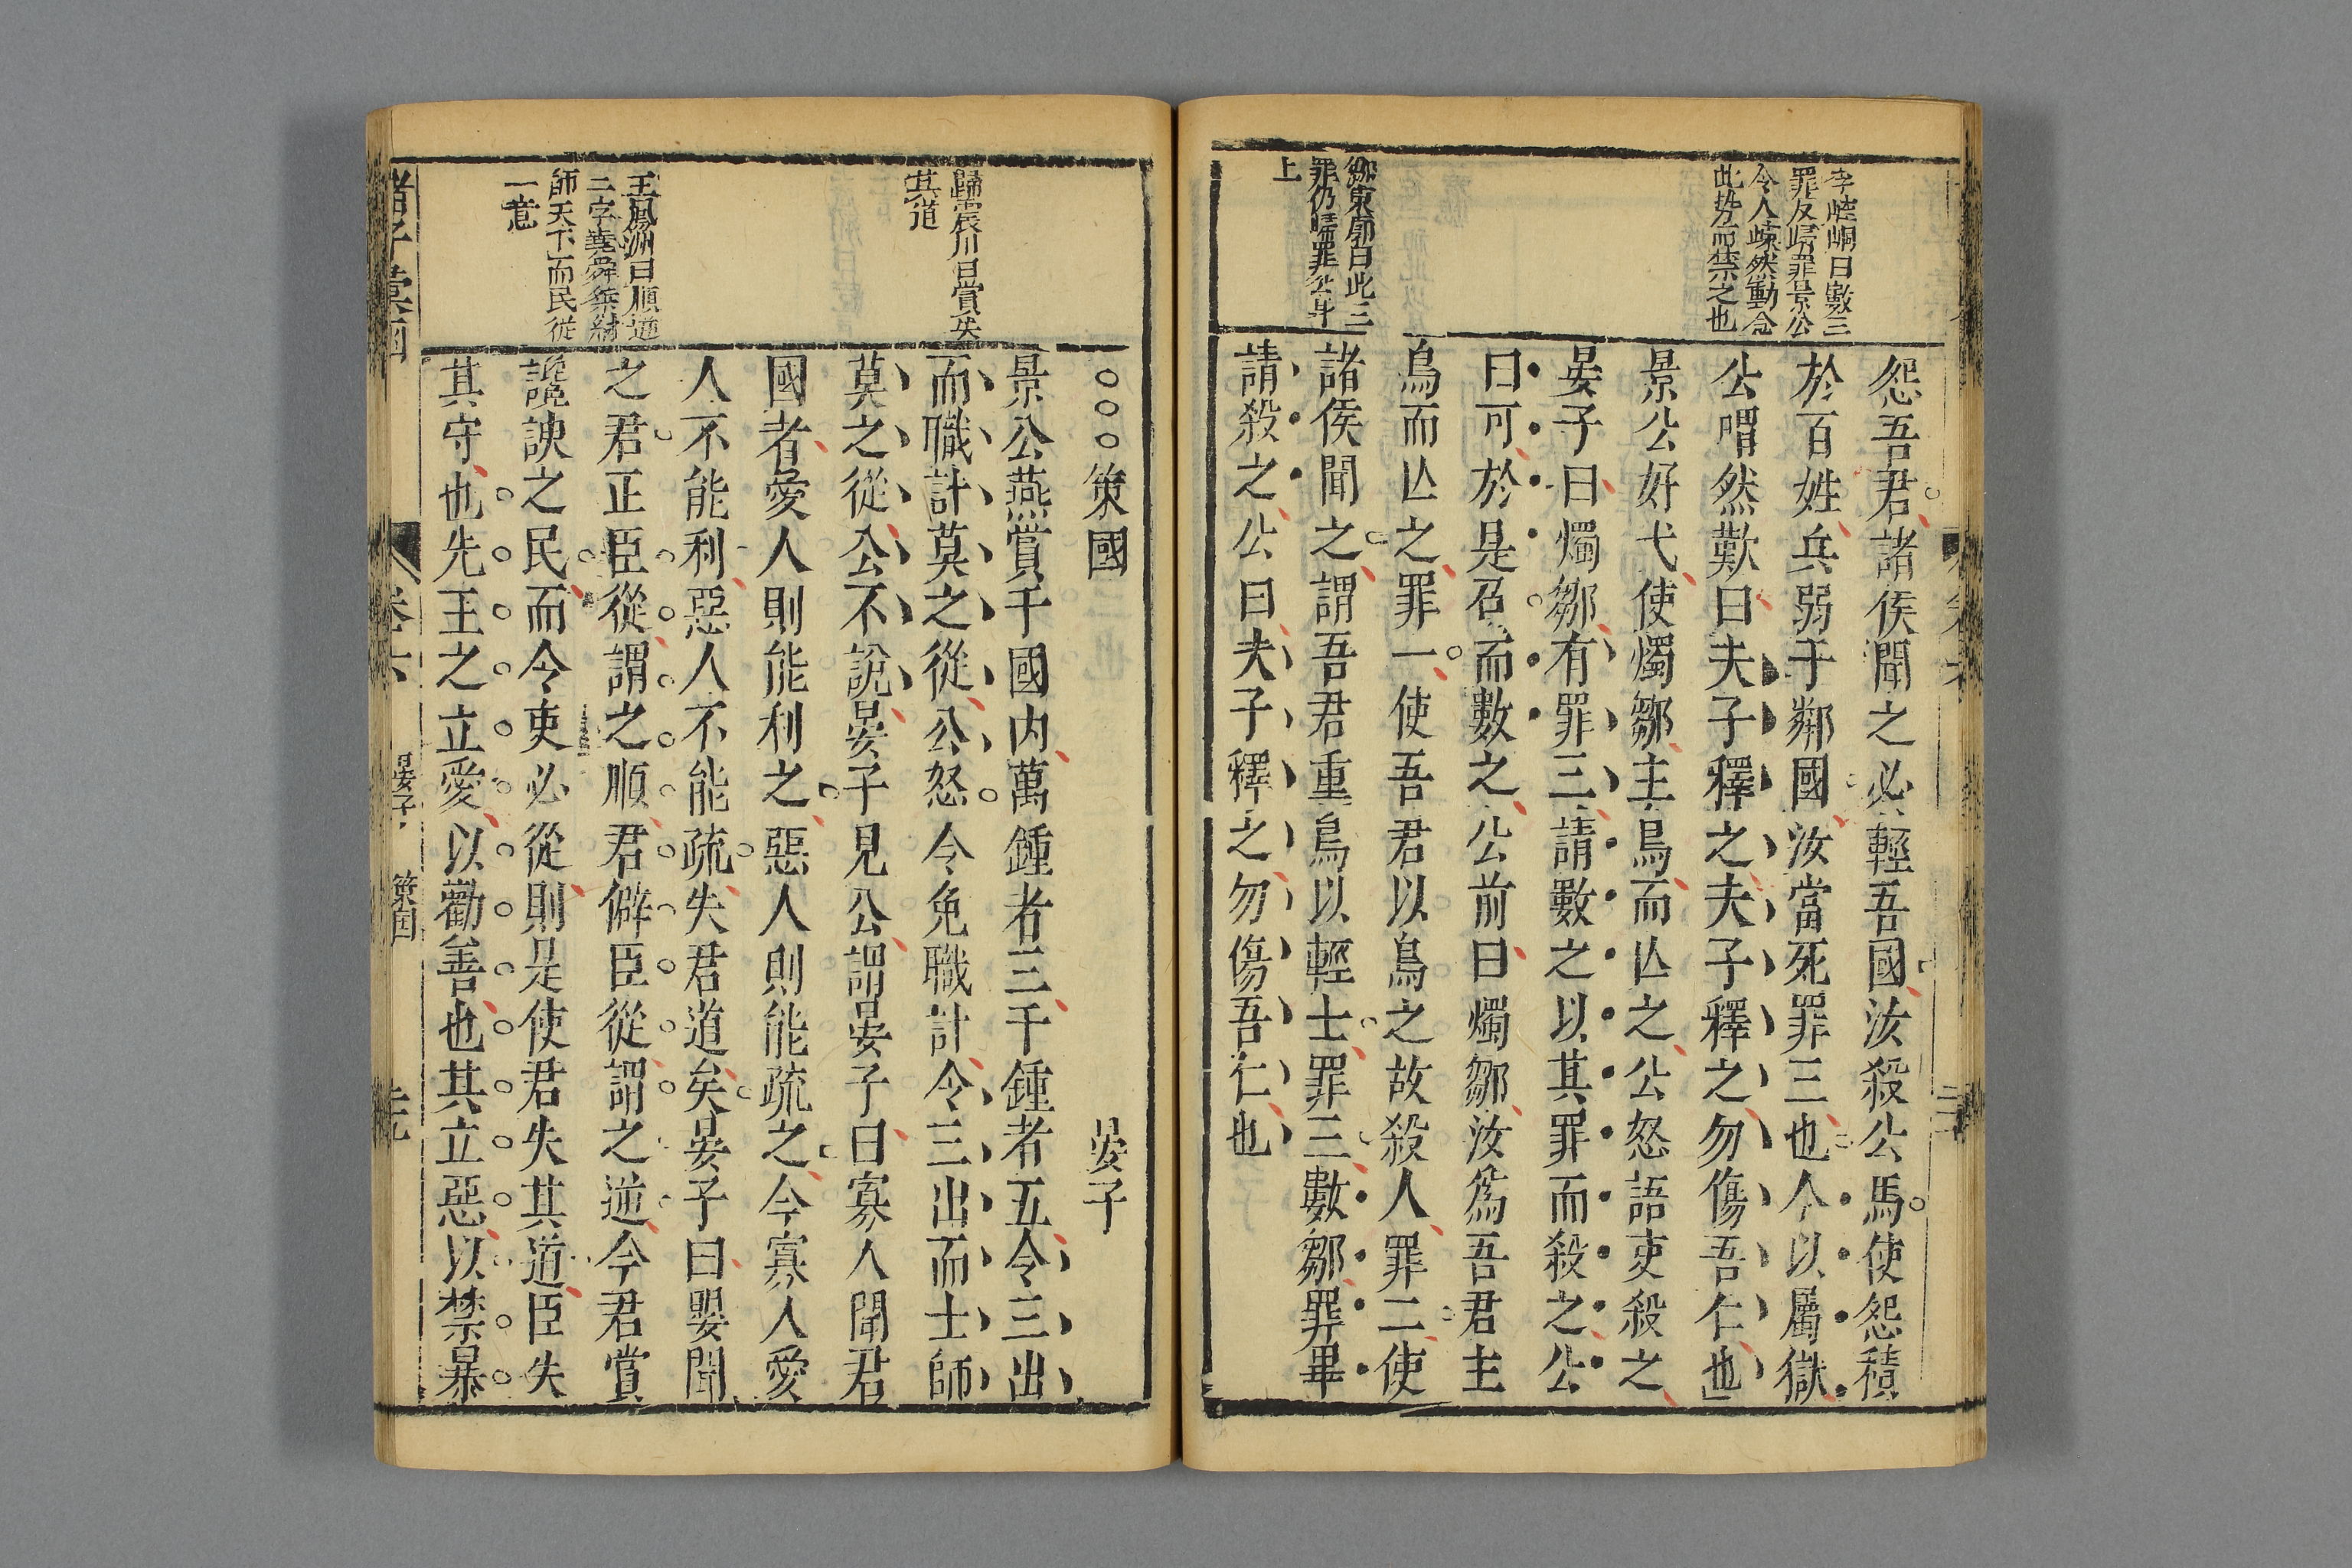 李崆峒曰數三
罪反歸罪景公
令人悚然動念
此勢而禁之也
怨吾君諸侯聞之必輕吾國汝殺公馬使怨積
於百姓兵弱于鄰國汝當死罪三也今以屬獄
公喟然歎曰夫子釋之夫子釋之勿傷吾仁也
景公好弋使燭鄒主鳥而亾之公怒語吏殺之
晏子曰燭鄒有罪三請數之以其罪而殺之公
曰可於是召而數之公前曰燭鄒汝為吾君主
鳥而亾之罪一使吾君以鳥之故殺人罪二使
鄒東廓曰此三
罪仍歸罪公身
上
諸侯聞之謂吾君重鳥以輕士罪三數鄒罪畢
請殺之公曰夫子釋之勿傷吾仁也
○○○策國 晏子
歸震川曰賞失
其道
景公燕賞千國内萬鍾者三千鍾者五令三出
而職計莫之從公怒令免職計令三出而士師
莫之從公不說晏子見公謂晏子曰寡人聞君
國者愛人則能利之惡人則能疏之今寡人愛
人不能利惡人不能疏失君道矣晏子曰嬰聞
王鳳洲曰順逆
二字堯舜桀紂
師天下而民從
一意
之君正臣從謂之順君僻臣從謂之逆今君賞
讒諛之民而令吏必從則是使君失其道臣失
其守也先王之立愛以勸善也其立惡以禁暴
諸子彙函
卷六
晏子
策国